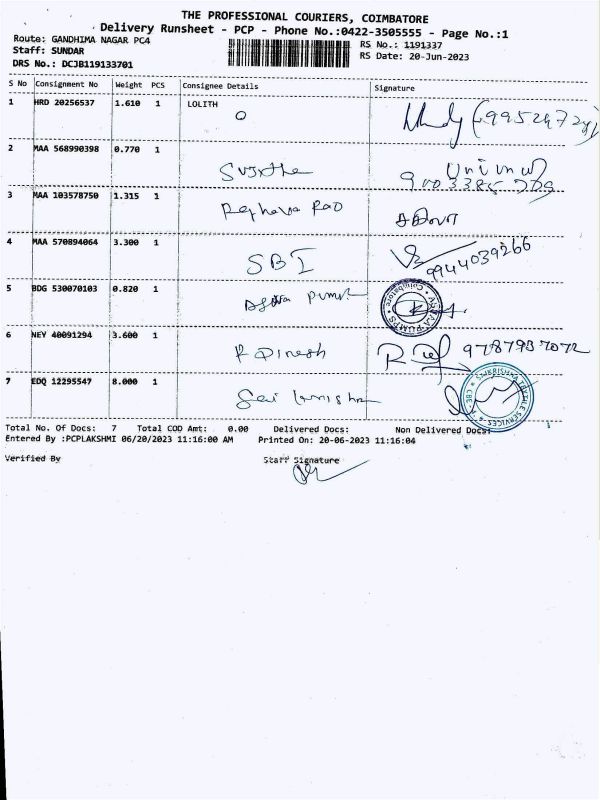 THE PROFESSIONAL COURIERS, COIMBATORE
Delivery Runsheet - PCP - Phone No.:0422-3505555 - Page No.:1
Route: GANDHIMA NAGAR PC4
Staff: SUNDAR
DRS No.: DCJB119133701
RS No.: 1191337
RS Date: 20-Jun-2023
S No Consignment No Weight PCS Consignee Details Signature
1 HRD 20256537 1.610 1 LOLITH
2 MAA 568990398 0.770 1
3 MAA 103578750 1.315 1 Raghava Rao
4 MAA 570894064 3.300 1 SBI 9944039266
5 BDG 530070103 0.820 1
6 NEY 40091294 3.600 1 R Dinesh 9787937072
7 EDQ 12295547 8.000 1
Total No. Of Docs: 7 Total COD Amt: 0.00 Delivered Docs: Non Delivered Docs:
Entered By :PCPLAKSHMI 06/20/2023 11:16:00 AM Printed On: 20-06-2023 11:16:04
Verified By Staff Signature